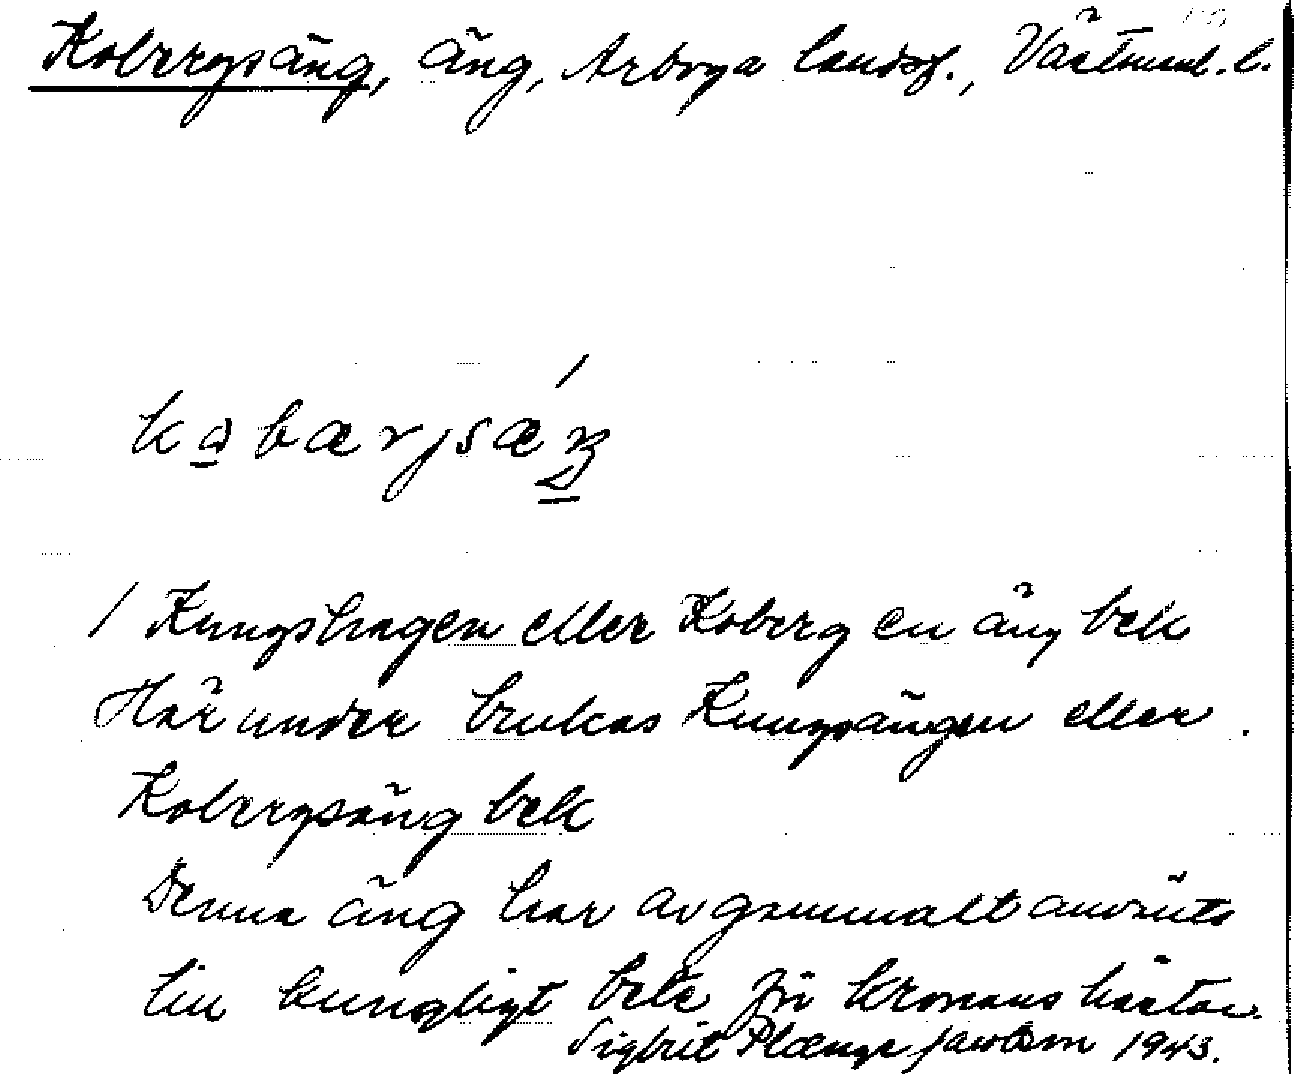 Kobergsäng, äng, Arboga landsf., Västmanl. l.
/
kabærjsæŋ
/ Kungshagen eller Koberg en äng bek
Härunder brukas Kungsängen eller
Kobergsäng bek
Denna äng har av gammalt använts
till kungligt bete för kronans hästar.
Sigbrit Plænge Jacobson 1943.